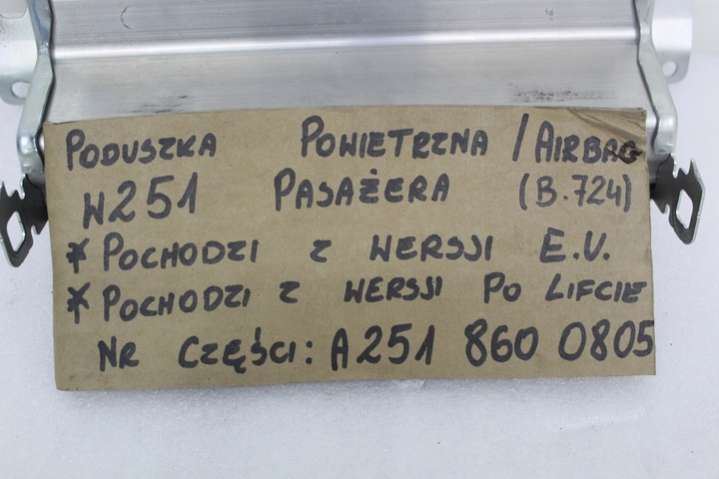 PODUSZKA POWIETRZNA / AIRBAG
W251 PASAŻERA (B.724)
* POCHODZI Z WERSJI E.U.
* POCHODZI Z WERSJI PO LIFCIE
NR CZĘŚCI: A251 860 0805